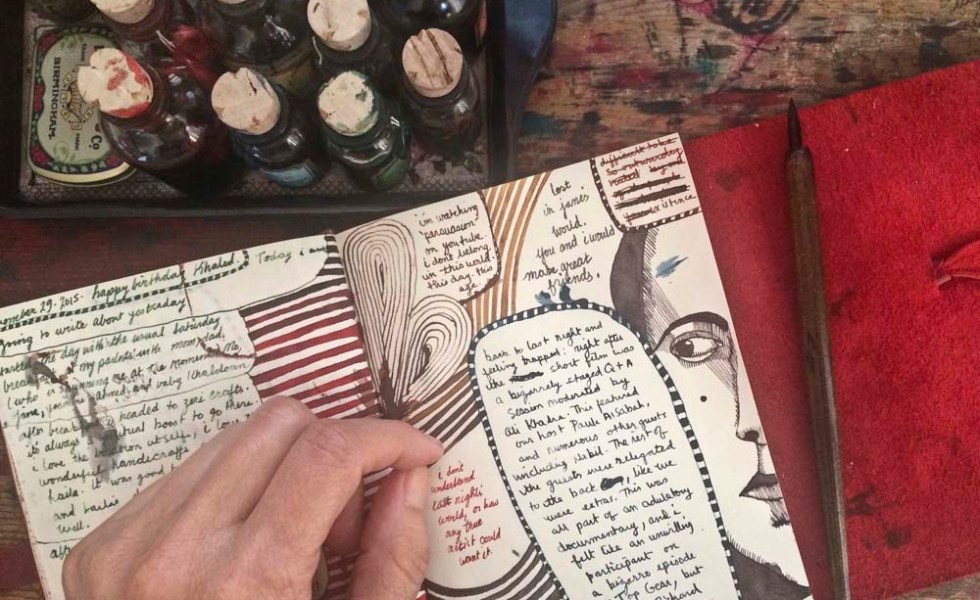 BIRMINGHAM
Co
november 29. 2015. happy birthday Khaled. Today i am
going to write about yesterday
started the day with the usual saturday
my parents: with mom, dad,
(who is me at the moment),
jane, ahmed, and baby Khaldoun
after breakfast headed to zeri crafts.
its always ritual boost to go there
i love the in itself, i love
wonderful handicrafts
haila. it was good
and
well.
i'm watching
"persuasion"
on youtube.
i dont belong
in this world.
this day. this
age.
lost
in janes
world.
you and i would
make great
friends.
difficult to be
so outwardly
existence
back to last night and
feeling trapped: right after
the short film was
a bizarrely staged Q + A
session moderated by
Ali Khadra. This featured
our host Paule AlSabah,
and numerous other guests
including Nabil. The rest of
the guests were relegated
to the back, like we
were extras. This was
all part of an adulatory
documentary, and i
felt like an unwilling
participant on
a bizarre episode
Top Gear, but
i dont
understand
last nights
world, or how
any true
artist could
want it.